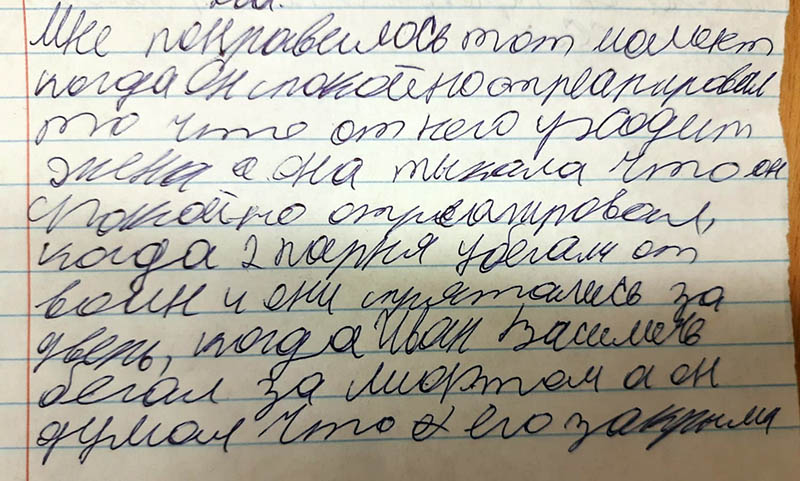 Мне понравелось тот момент
когда он спокойно отреагировал
то что от него уходит
жена а она тыкала что он
спокойно отреагировал,
когда 2 парня убегали от
воин и они прятались за
дверь, когда Иван Василичь
бегал за лифтом а он
думал что его закрыли